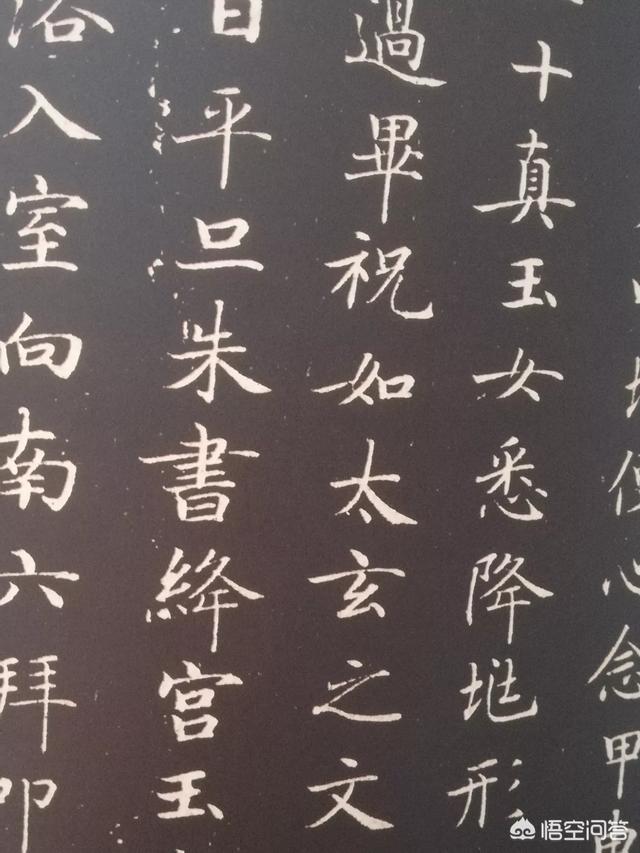 心念甲
十真玉女悉降地形
過畢祝如太玄之文
日平旦朱書絳宮玉
浴入室向南六拜叩
悟空问答